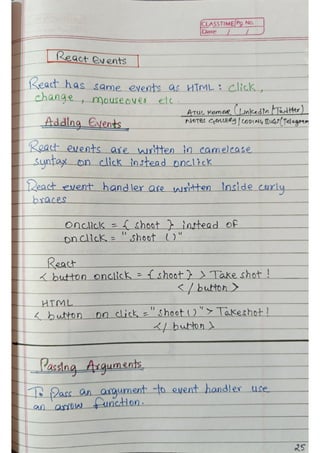 CLASSTIME Pg. No.
Date / /
React Events
React has same events as HTML : click,
change , mouseover etc.
Atul Kumar (LinkedIn/Twitter)
Adding Events
React events are written in camelcase
syntax on click instead onclick
React event handler are written inside curly
braces
onclick = { shoot } instead of
onclick = "shoot ()"
React
< button onclick = { shoot } > Take shot !
< / button >
HTML
< button on click = "shoot ( ) " > Takeshot !
< / button >
Passing Arguments
To Pass an argument to event handler use
an arrow function.
25